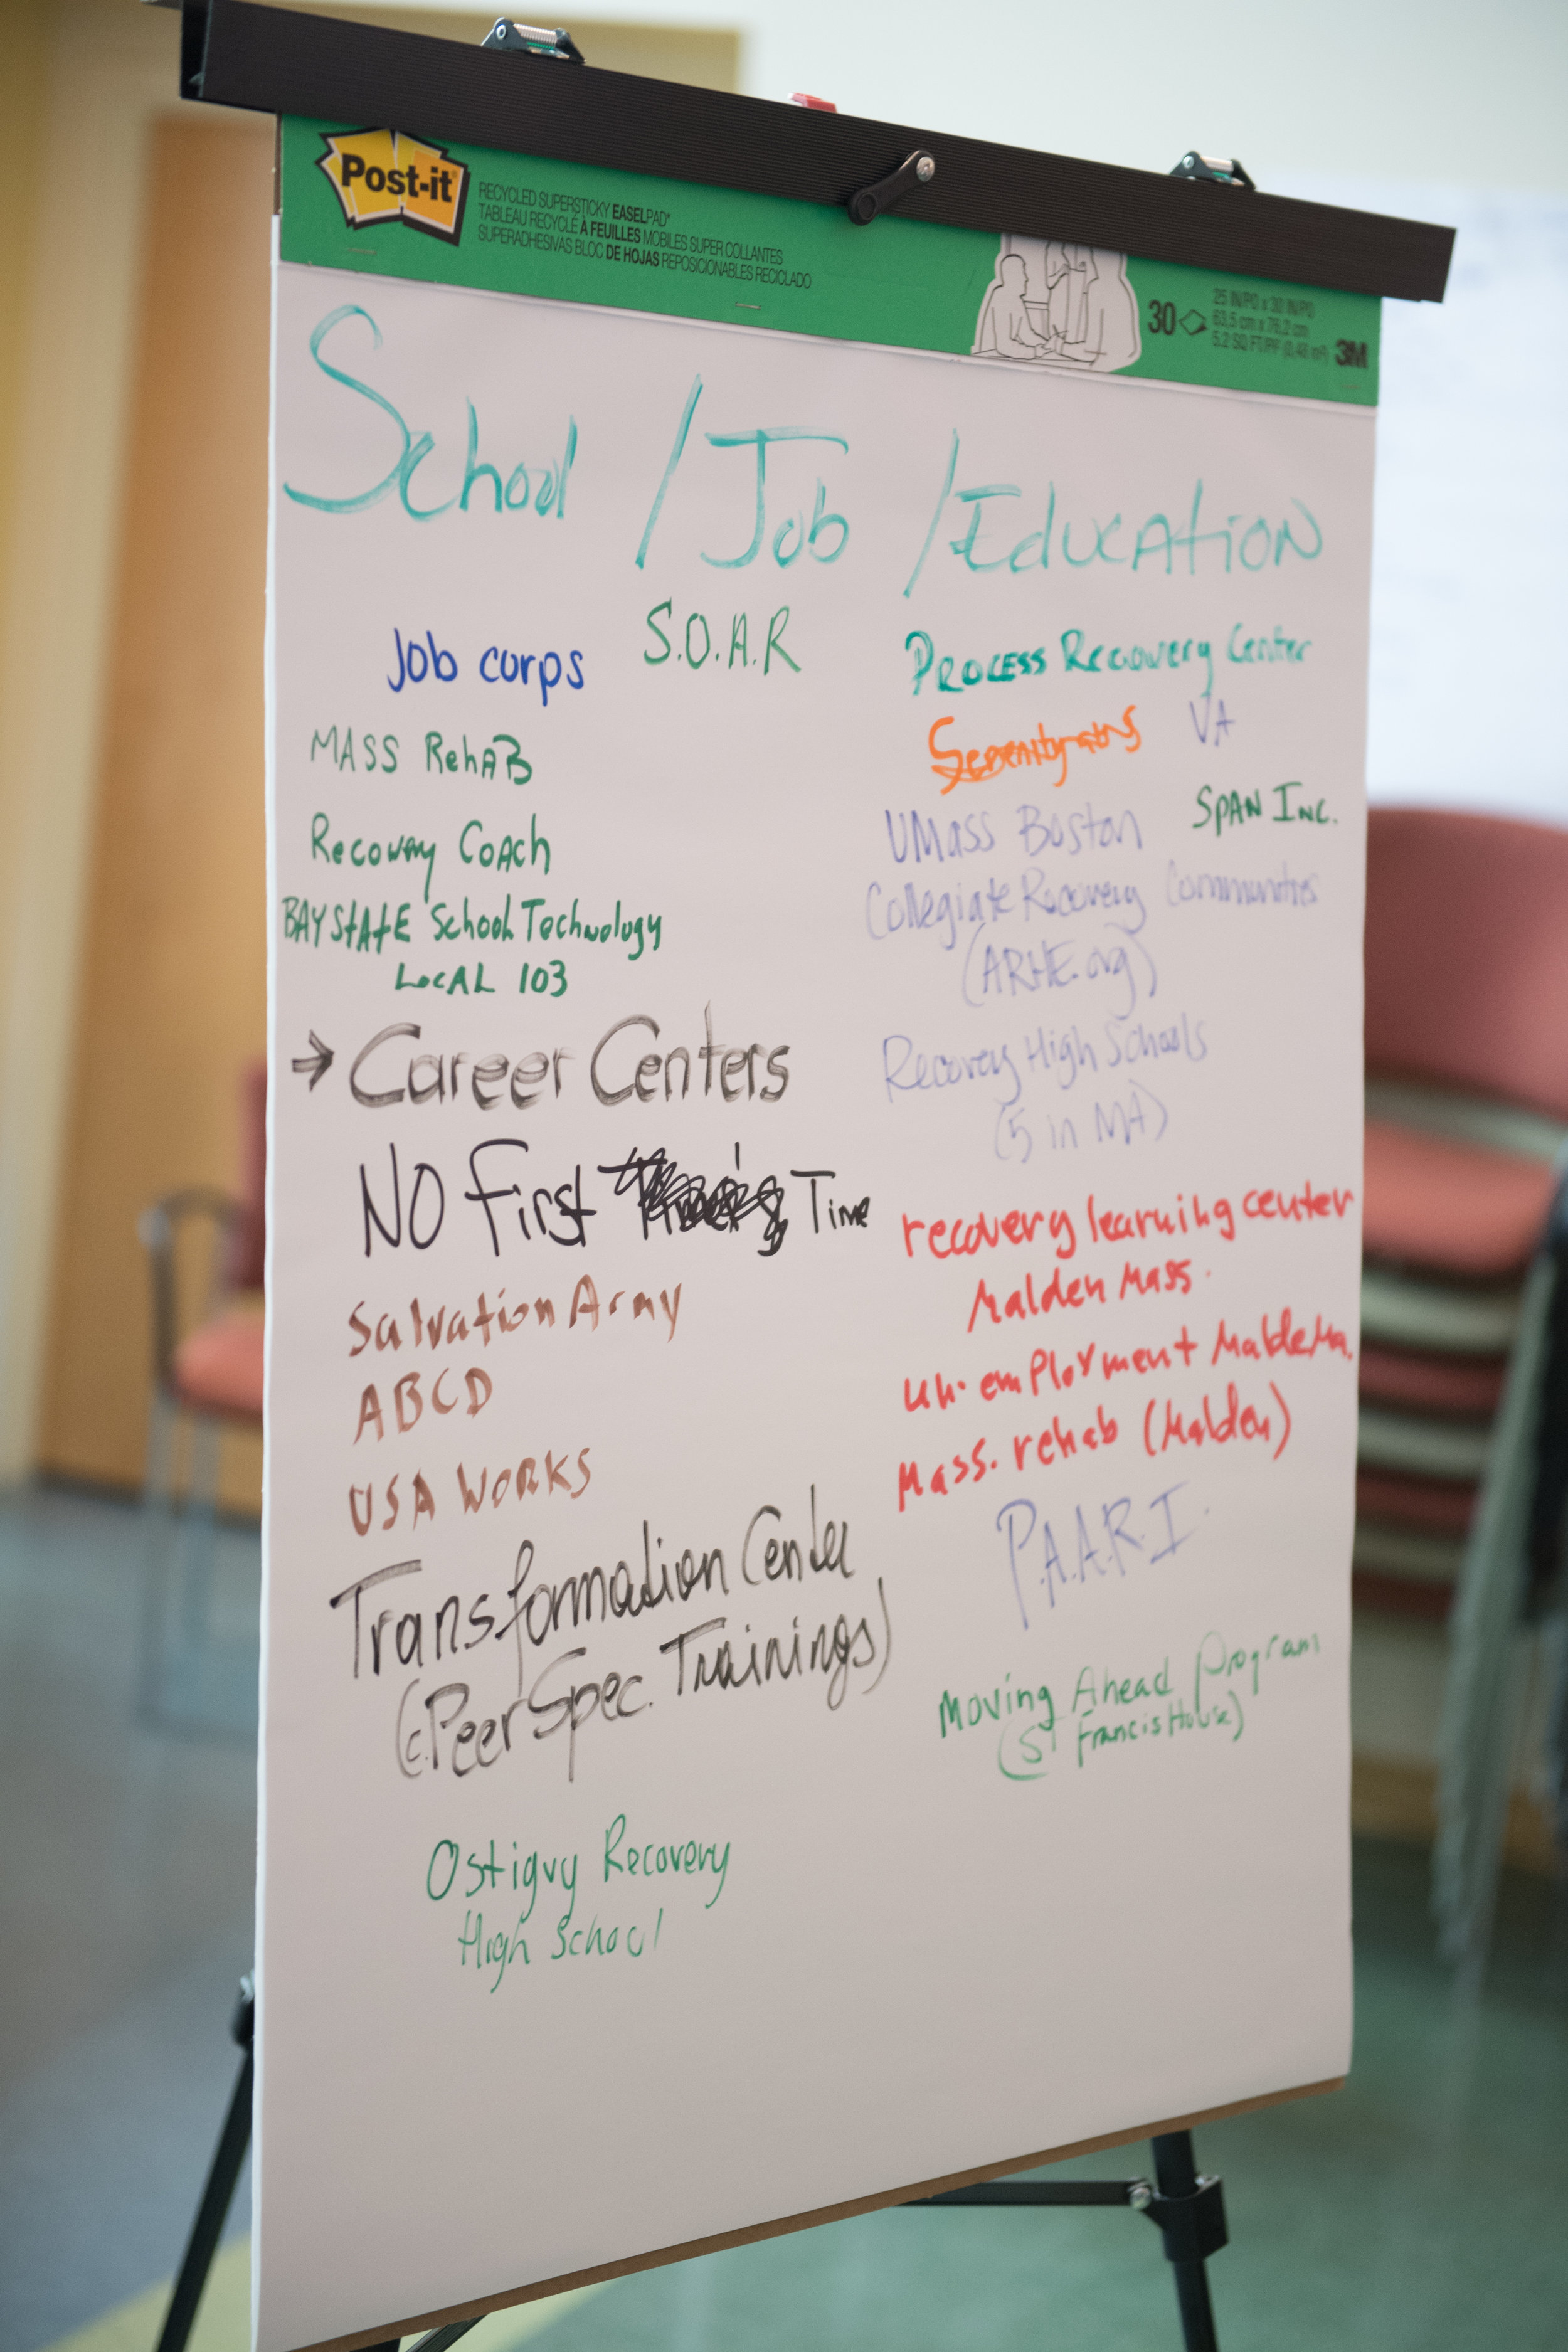 Post-it
RECYCLED SUPERSTICKY EASELPAD*
TABLEAU RECYCLÉ À FEUILLES MOBILES SUPER COLLANTES
SUPERADHESIVAS BLOC DE HOJAS REPOSICIONABLES RECICLADO
30
25 IN/PO x 30 IN/PO
63,5 cm x 76,2 cm
5.2 SQ FT/PI² (0,48 m²)
3M
School / Job / Education
S.O.A.R
Job corps
MASS RehAB
Recovery Coach
BAY StAtE School Technology
LocAL 103
→ Career Centers
NO First Time
Salvation Army
ABCD
USA WORKS
Transformation Center
(c.Peer Spec. Trainings)
Ostiguy Recovery
High School
Process Recovery Center
VA
UMass Boston
SPAN INC.
Collegiate Recovery Communities
(ARHE.org)
Recovery High Schools
(5 in MA)
recovery learning center
Malden Mass.
un-employment Malden
Mass. rehab (Malden)
P.A.A.R.I.
Moving Ahead Program
(St Francis House)